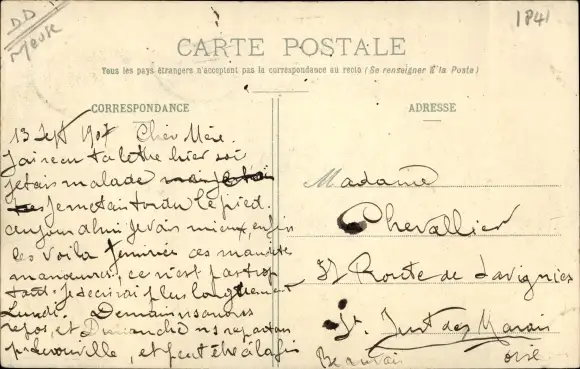 DD
Meuse
1841
CARTE POSTALE
Tous les pays étrangers n'acceptent pas la correspondance au recto (Se renseigner à la Poste)
CORRESPONDANCE
13 Sept 1907 Cher Mère.
J'ai recu ta lettre hier soir
jetais malade
Je metais tordu le pied.
aujourd'hui je vais mieux, enfin
les voila terminée ces maudites
manœuvres, ce n'est pas trop
tout. Je t'ecrirai plus longuement
Lundi. Demain ns avons
repos, et Dimanche ns repartons
, et peut être à la fin
ADRESSE
Madame
Chevallier
37 Route de Savignies
St. Just des Marais
Beauvais
oise